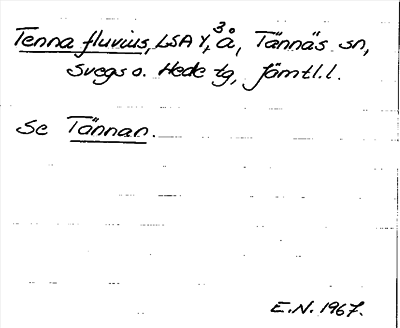 Tenna fluvius, LSA Y, ³å, Tännäs sn,
Svegs o. Hede tg, Jämtl.l.
Se Tännan.
E.N. 1967.